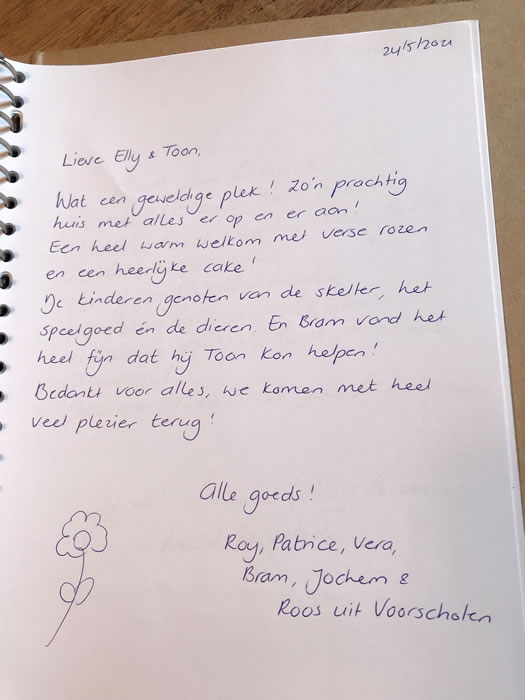 24/5/2021
Lieve Elly & Toon,
Wat een geweldige plek! Zo'n prachtig
huis met alles er op en er aan!
Een heel warm welkom met verse rozen
en een heerlijke cake!
De kinderen genoten van de skelter, het
speelgoed én de dieren. En Bram vond het
heel fijn dat hij Toon kon helpen!
Bedankt voor alles, we komen met heel
veel plezier terug!
Alle goeds!
Roy, Patrice, Vera,
Bram, Jochem &
Roos uit Voorschoten